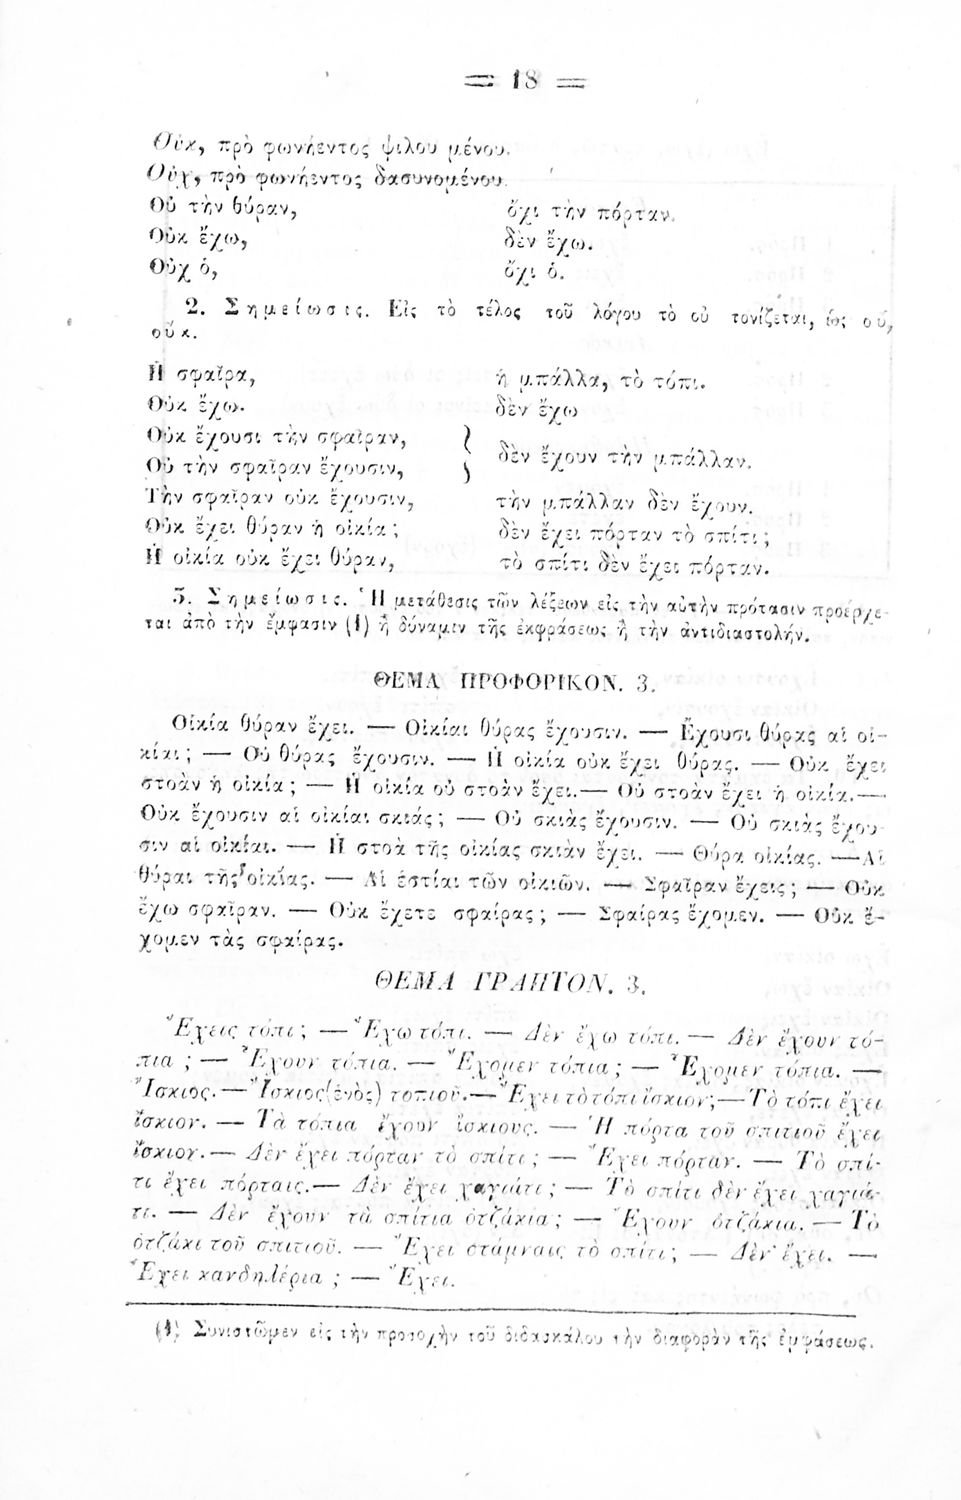 = 18 =
Οὐκ, πρὸ φωνήεντος ψιλουμένου.
Οὐχ, πρὸ φωνήεντος δασυνομένου.
Οὐ τὴν θύραν, ὄχι τὴν πόρταν.
Οὐκ ἔχω, δὲν ἔχω.
Οὐχ ὁ, ὄχι ὁ.
2. Σημείωσις. Εἰς τὸ τέλος τοῦ λόγου τὸ οὐ τονίζεται, ὡς οὔ,
οὔκ.
Ἡ σφαῖρα, ἡ μπάλλα, τὸ τόπι.
Οὐκ ἔχω. δὲν ἔχω
Οὐκ ἔχουσι τὴν σφαῖραν,
Οὐ τὴν σφαῖραν ἔχουσιν, } δὲν ἔχουν τὴν μπάλλαν.
Τὴν σφαῖραν οὐκ ἔχουσιν, τὴν μπάλλαν δὲν ἔχουν.
Οὐκ ἔχει θύραν ἡ οἰκία; δὲν ἔχει πόρταν τὸ σπίτι;
Ἡ οἰκία οὐκ ἔχει θύραν, τὸ σπίτι δὲν ἔχει πόρταν.
3. Σημείωσις. Ἡ μετάθεσις τῶν λέξεων εἰς τὴν αὐτὴν πρότασιν προέρχε-
ται ἀπὸ τὴν ἔμφασιν (1) ἢ δύναμιν τῆς ἐκφράσεως ἢ τὴν ἀντιδιαστολήν.
ΘΕΜΑ ΠΡΟΦΟΡΙΚΟΝ. 3.
Οἰκία θύραν ἔχει. — Οἰκίαι θύρας ἔχουσιν. — Ἔχουσι θύρας αἱ οἰ-
κίαι; — Οὐ θύρας ἔχουσιν. — Ἡ οἰκία οὐκ ἔχει θύρας. — Οὐκ ἔχει
στοὰν ἡ οἰκία; — Ἡ οἰκία οὐ στοὰν ἔχει. — Οὐ στοὰν ἔχει ἡ οἰκία. —
Οὐκ ἔχουσιν αἱ οἰκίαι σκιάς; — Οὐ σκιὰς ἔχουσιν. — Οὐ σκιὰς ἔχου-
σιν αἱ οἰκίαι. — Ἡ στοὰ τῆς οἰκίας σκιὰν ἔχει. — Θύρα οἰκίας. — Αἱ
θύραι τῆς οἰκίας. — Αἱ ἑστίαι τῶν οἰκιῶν. — Σφαῖραν ἔχεις; — Οὐκ
ἔχω σφαῖραν. — Οὐκ ἔχετε σφαίρας; — Σφαίρας ἔχομεν. — Οὐκ ἔ-
χομεν τὰς σφαίρας.
ΘΕΜΑ ΓΡΑΠΤΟΝ. 3.
Ἔχεις τόπι; — Ἔχω τόπι. — Δὲν ἔχω τόπι. — Δὲν ἔχουν τό-
πια; — Ἔχουν τόπια. — Ἔχομεν τόπια; — Ἔχομεν τόπια. —
Ἴσκιος. — Ἴσκιος (ἑνὸς) τοπιοῦ. — Ἔχει τὸ τόπι ἴσκιον; — Τὸ τόπι ἔχει
ἴσκιον. — Τὰ τόπια ἔχουν ἴσκιους. — Ἡ πόρτα τοῦ σπιτιοῦ ἔχει
ἴσκιον. — Δὲν ἔχει πόρταν τὸ σπίτι; — Ἔχει πόρταν. — Τὸ σπί-
τι ἔχει πόρταις. — Δὲν ἔχει χαγιάτι; — Τὸ σπίτι δὲν ἔχει χαγιά-
τι. — Δὲν ἔχουν τὰ σπίτια ὀτζάκια; — Ἔχουν ὀτζάκια. — Τὸ
ὀτζάκι τοῦ σπιτιοῦ. — Ἔχει στάμναις τὸ σπίτι; — Δὲν ἔχει. —
Ἔχει κανδηλέρια; — Ἔχει.
(1) Συνιστῶμεν εἰς τὴν προσοχὴν τοῦ διδασκάλου τὴν διαφορὰν τῆς ἐμφάσεως.